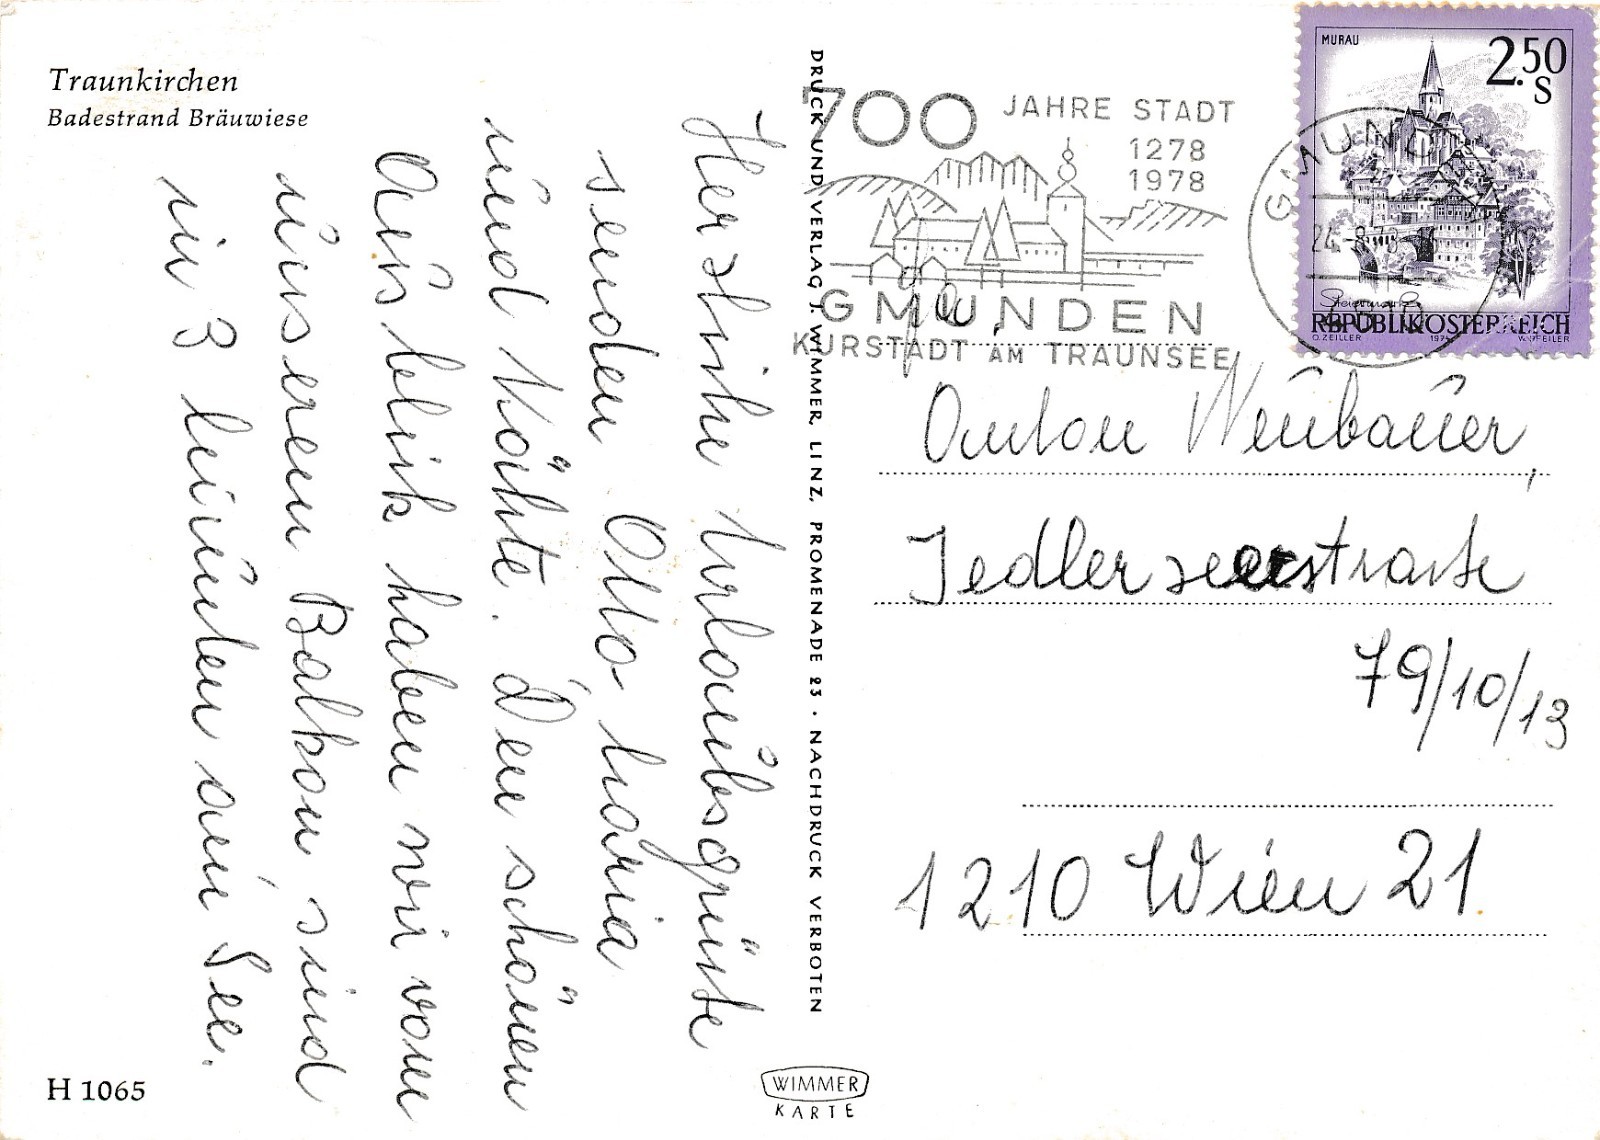 Traunkirchen
Badestrand Bräuwiese
Herzliche Urlaubsgrüße
senden Otto Maria
und Köchte. Den schönen
Ausblick haben wir vom
unserem Balkon sind
in 3 Minuten am See.
H 1065
DRUCK UND VERLAG J. WIMMER, LINZ, PROMENADE 23 · NACHDRUCK VERBOTEN
WIMMER
KARTE
700 JAHRE STADT
1278
1978
GMUNDEN
KURSTADT AM TRAUNSEE
GMUNDEN
MURAU
2.50
S
Steiermark
REPUBLIK ÖSTERREICH
O. ZEILLER 1974 W. PFEILER
Fa.
Anton Neubauer,
Jedlerseerstraße
79/10/13
1210 Wien 21